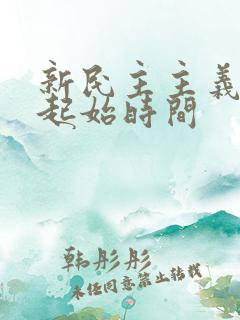 新民主主義
起始時間
韩彤彤
未经同意禁止转载